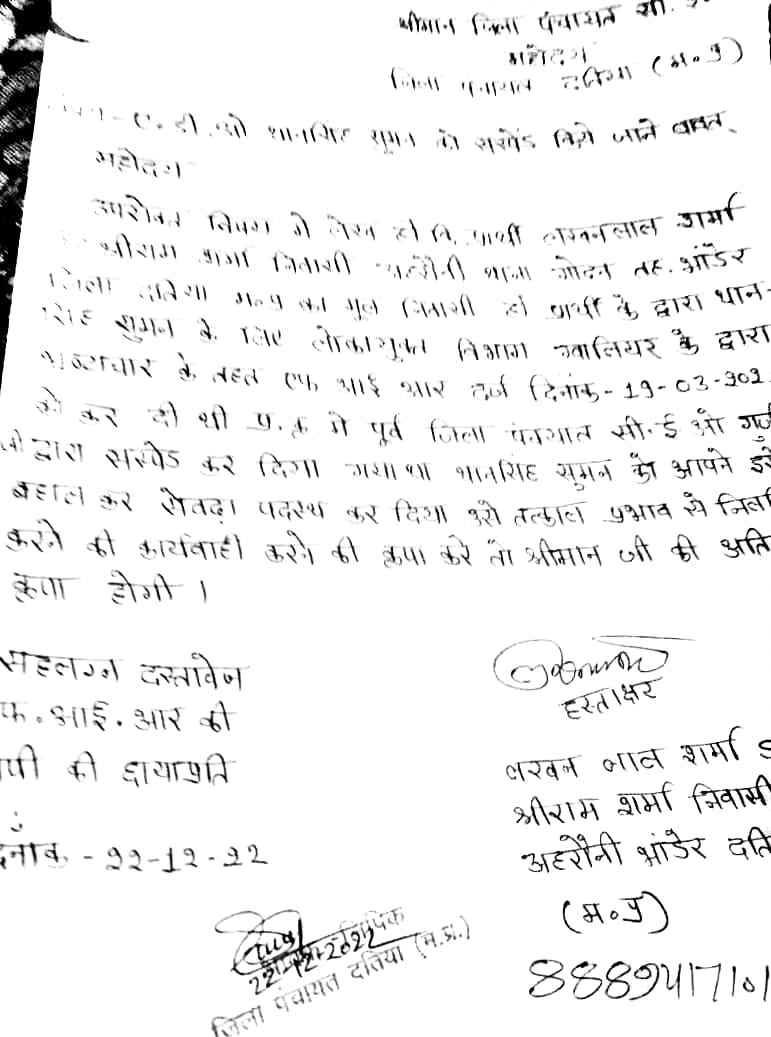 श्रीमान जिला पंचायत सी.
महोदय
जिला पंचायत दतिया (म.प्र)
ए.डी.ओ थानसिंह सुमन को सस्पेंड किये जाने बावत्
महोदय
उपरोक्त विषय में लेख है कि प्रार्थी लखनलाल शर्मा
श्रीराम शर्मा निवासी अहरौनी थाना गोदन तह. भांडेर
जिला दतिया म.प्र का मूल निवासी हूँ प्रार्थी के द्वारा थान-
सिंह सुमन के लिए लोकायुक्त विभाग ग्वालियर के द्वारा
के तहत एफ आई आर दर्ज दिनांक - 19-03-202
को कर दी थी प्र.क्र में पूर्व जिला पंचायत सी.ई ओ
द्वारा सस्पेंड कर दिया गया था थानसिंह सुमन को आपने इसे
बहाल कर सेवढ़ा पदस्थ कर दिया उसे तत्काल प्रभाव से
करने की कार्यवाही करने की कृपा करे तो श्रीमान जी की अति
कृपा होगी ।
सहलग्न दस्तावेज
फ.आई.आर की
की छायाप्रति
- 22-12-22
हस्ताक्षर
लखन लाल शर्मा S
श्रीराम शर्मा निवासी
अहरौनी भांडेर दति
(म.प्र)
8889417101
22-12-2022
जिला पंचायत दतिया (म.प्र.)